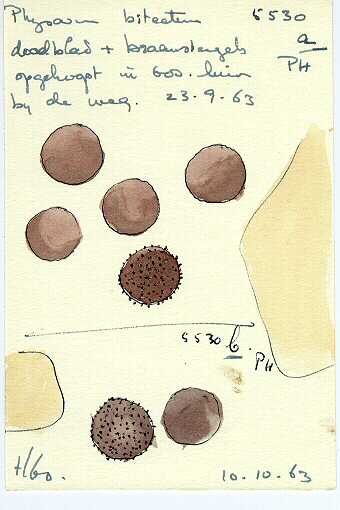 Physarum bitectum 5530
a
doodblad + braamstengels PH
opgehoopt in bos. 
by de weg. 23.9.63
5530 b.
PH
10.10.63